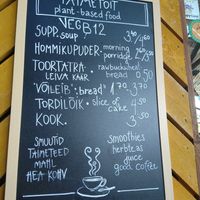 TAIMETOIT
plant-based food
VEGB12
SUPP. soup 3.40/4.60
HOMMIKUPUDER. morning porridge
TOORTATRA- raw buckwheat
LEIVA KÄÄR bread 0.50
"VÕILEIB" "bread" 1.70 3.70
TORDILÕIK. slice of cake 4.50
KOOK. 3.50
SMUUTID smoothies
TAIMETEED herbteas
MAHL juice
HEA KOHV good coffee